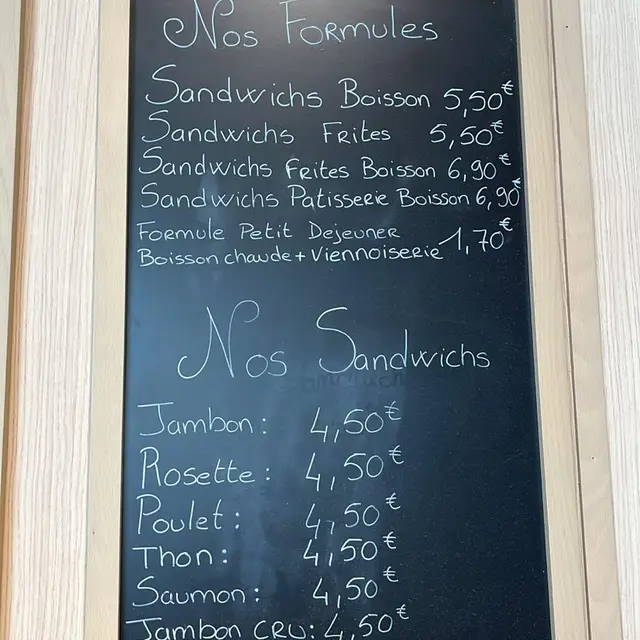 Nos Formules
Sandwichs Boisson 5,50€
Sandwichs Frites 5,50€
Sandwichs Frites Boisson 6,90€
Sandwichs Patisserie Boisson 6,90€
Formule Petit Dejeuner
Boisson chaude + Viennoiserie 1,70€
Nos Sandwichs
Jambon : 4,50€
Rosette : 4,50€
Poulet : 4,50€
Thon : 4,50€
Saumon : 4,50€
Jambon CRU : 4,50€